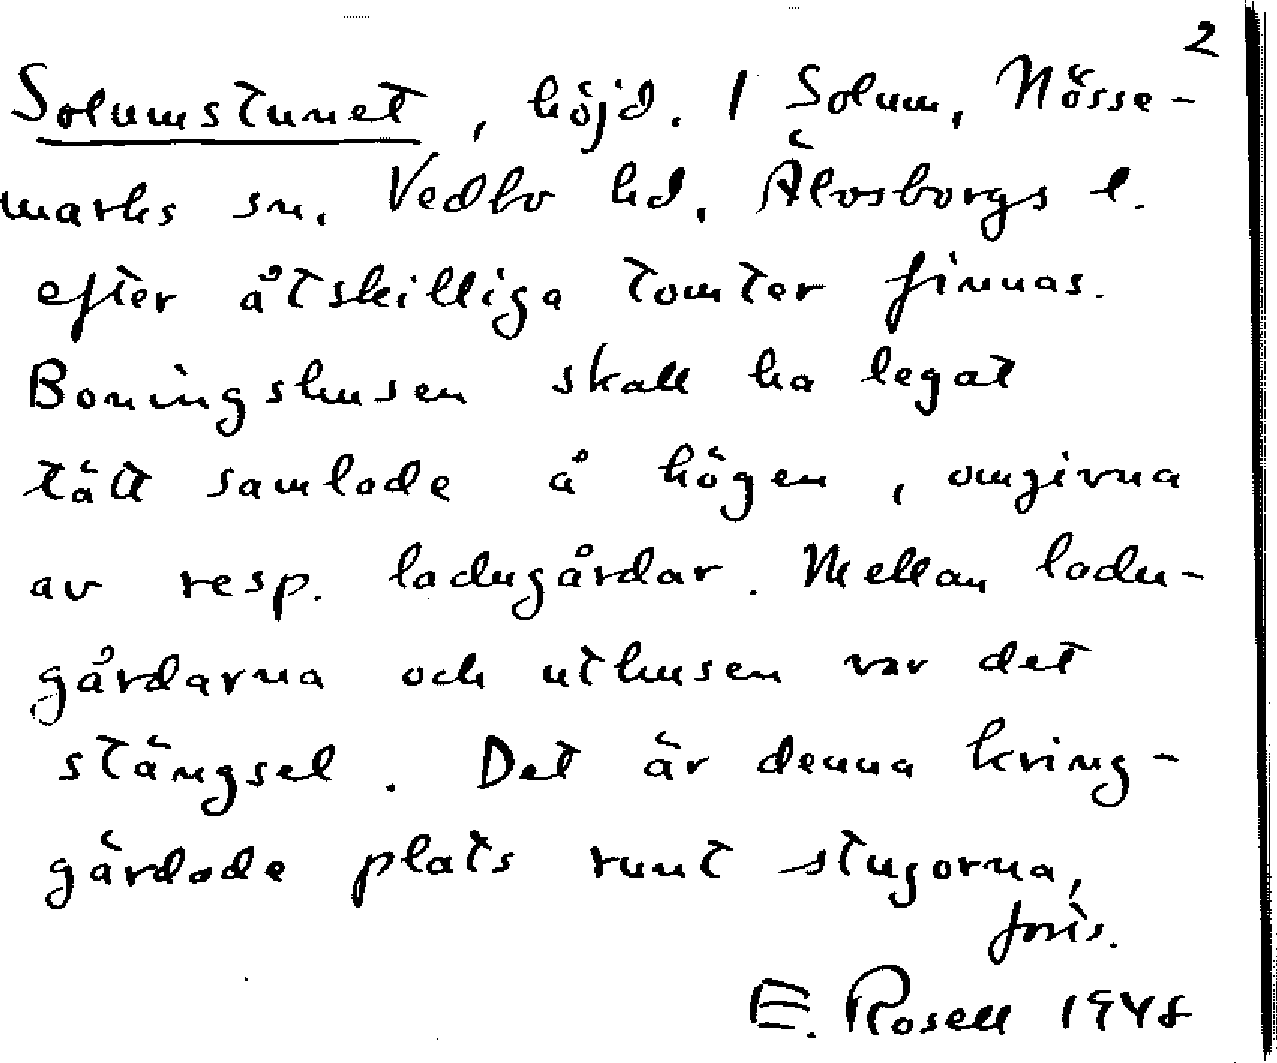 2
Solumstunet, höjd. I Solum, Nösse-
marks sn. Vedbo hd. Älvsborgs l.
efter åtskilliga tomter finnas.
Boningshusen skall ha legat
tätt samlade å högen, omgivna
av resp. ladugårdar. Mellan ladu-
gårdarna och uthusen var det
stängsel. Det är denna kring-
gärdade plats runt stugorna,
forts.
E. Rosell 1948